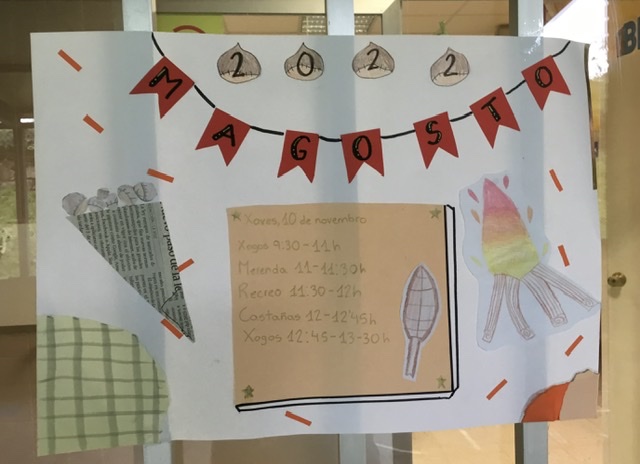 2022
MAGOSTO
Xoves, 10 de novembro
Xogos 9:30-11h
Merenda 11-11:30h
Recreo 11:30-12h
Castañas 12-12'45h
Xogos 12:45-13-30h